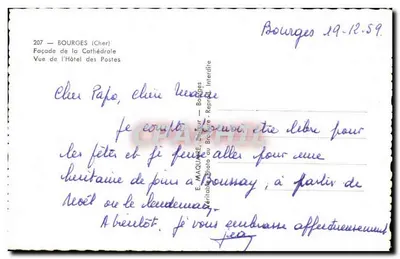 Bourges 19-12-59
207 — BOURGES (Cher)
Façade de la Cathédrale
Vue de l'Hôtel des Postes
Cher Papa, chère Maman
Je compte pouvoir être libre pour
les fêtes et je pense aller pour une
huitaine de jours à Boussay, à partir de
Noël ou le lendemain.
A bientôt, je vous embrasse affectueusement
Jean
E. MAQUAIRE, Bourges
Reprod. Interdite